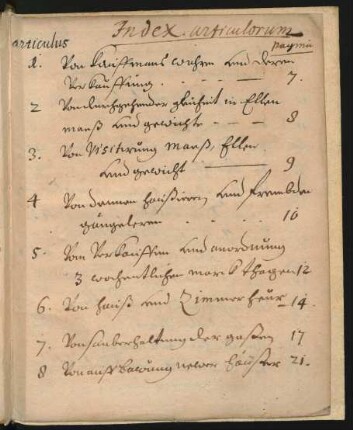 Index articulorum
articulus pagina
1. Von Kauffmans wahren und deren
Verkauffung. - - - 7.
2 Von durchgehender gleicheit in Ellen
maeß und gewichte - - - 8
3. Von Visitirung Maeß, Ellen
und gewicht 9
4 Von denen haußirern und frembden
gängeleren . . . . 10
5. Vom Verkauffen und anordnung
3 wochentlichen marckthagen 12
6. Von hauß und Zimmer heur 14.
7. Von sauberhaltung der gaßen 17
8 Von aufbawung newer häußer 21.